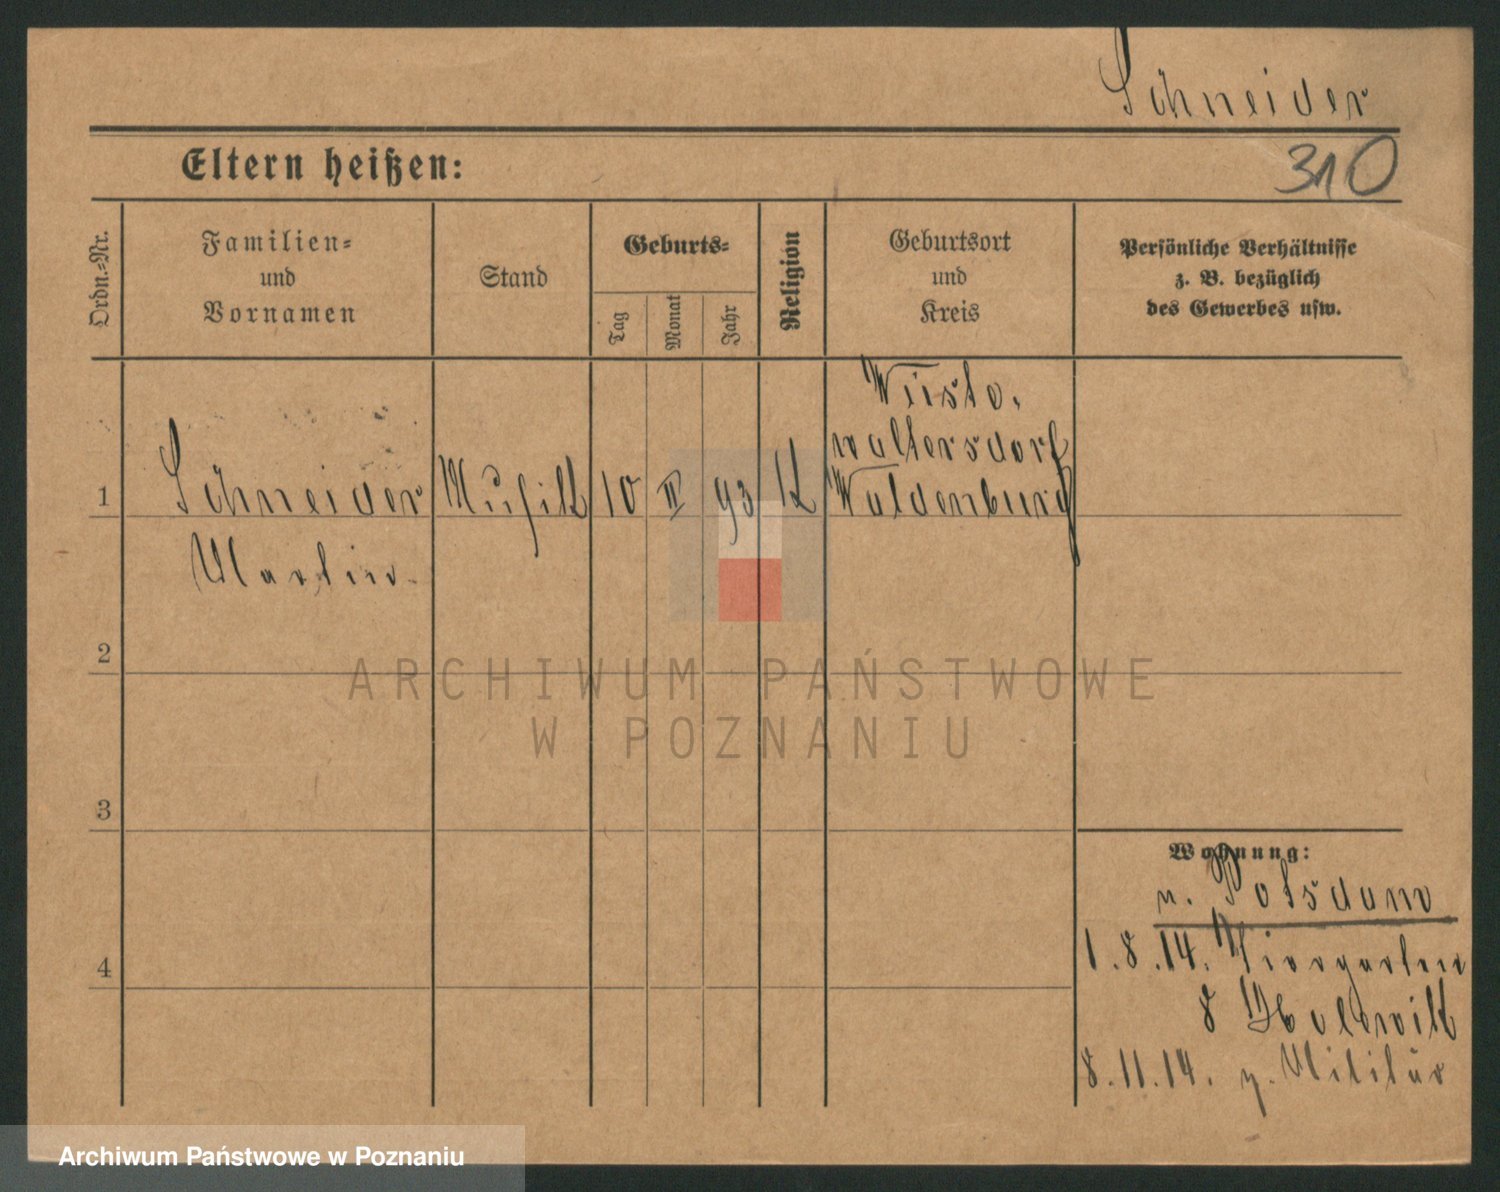 Schneider
Eltern heißen:
310
Ordn.-Nr.
Familien-
und
Vornamen
Stand
Geburts-
Tag
Monat
Jahr
Religion
Geburtsort
und
Kreis
Persönliche Verhältnisse
z. B. bezüglich
des Gewerbes usw.
1
Schneider
Martin
Musik
10
II
93
K
Wüste-
waltersdorf
Waldenburg
2
3
4
Wohnung:
n. Potsdam
1.8.14. Tiergarten
8
8.11.14. z. Militär
ARCHIWUM PAŃSTWOWE
W POZNANIU
Archiwum Państwowe w Poznaniu